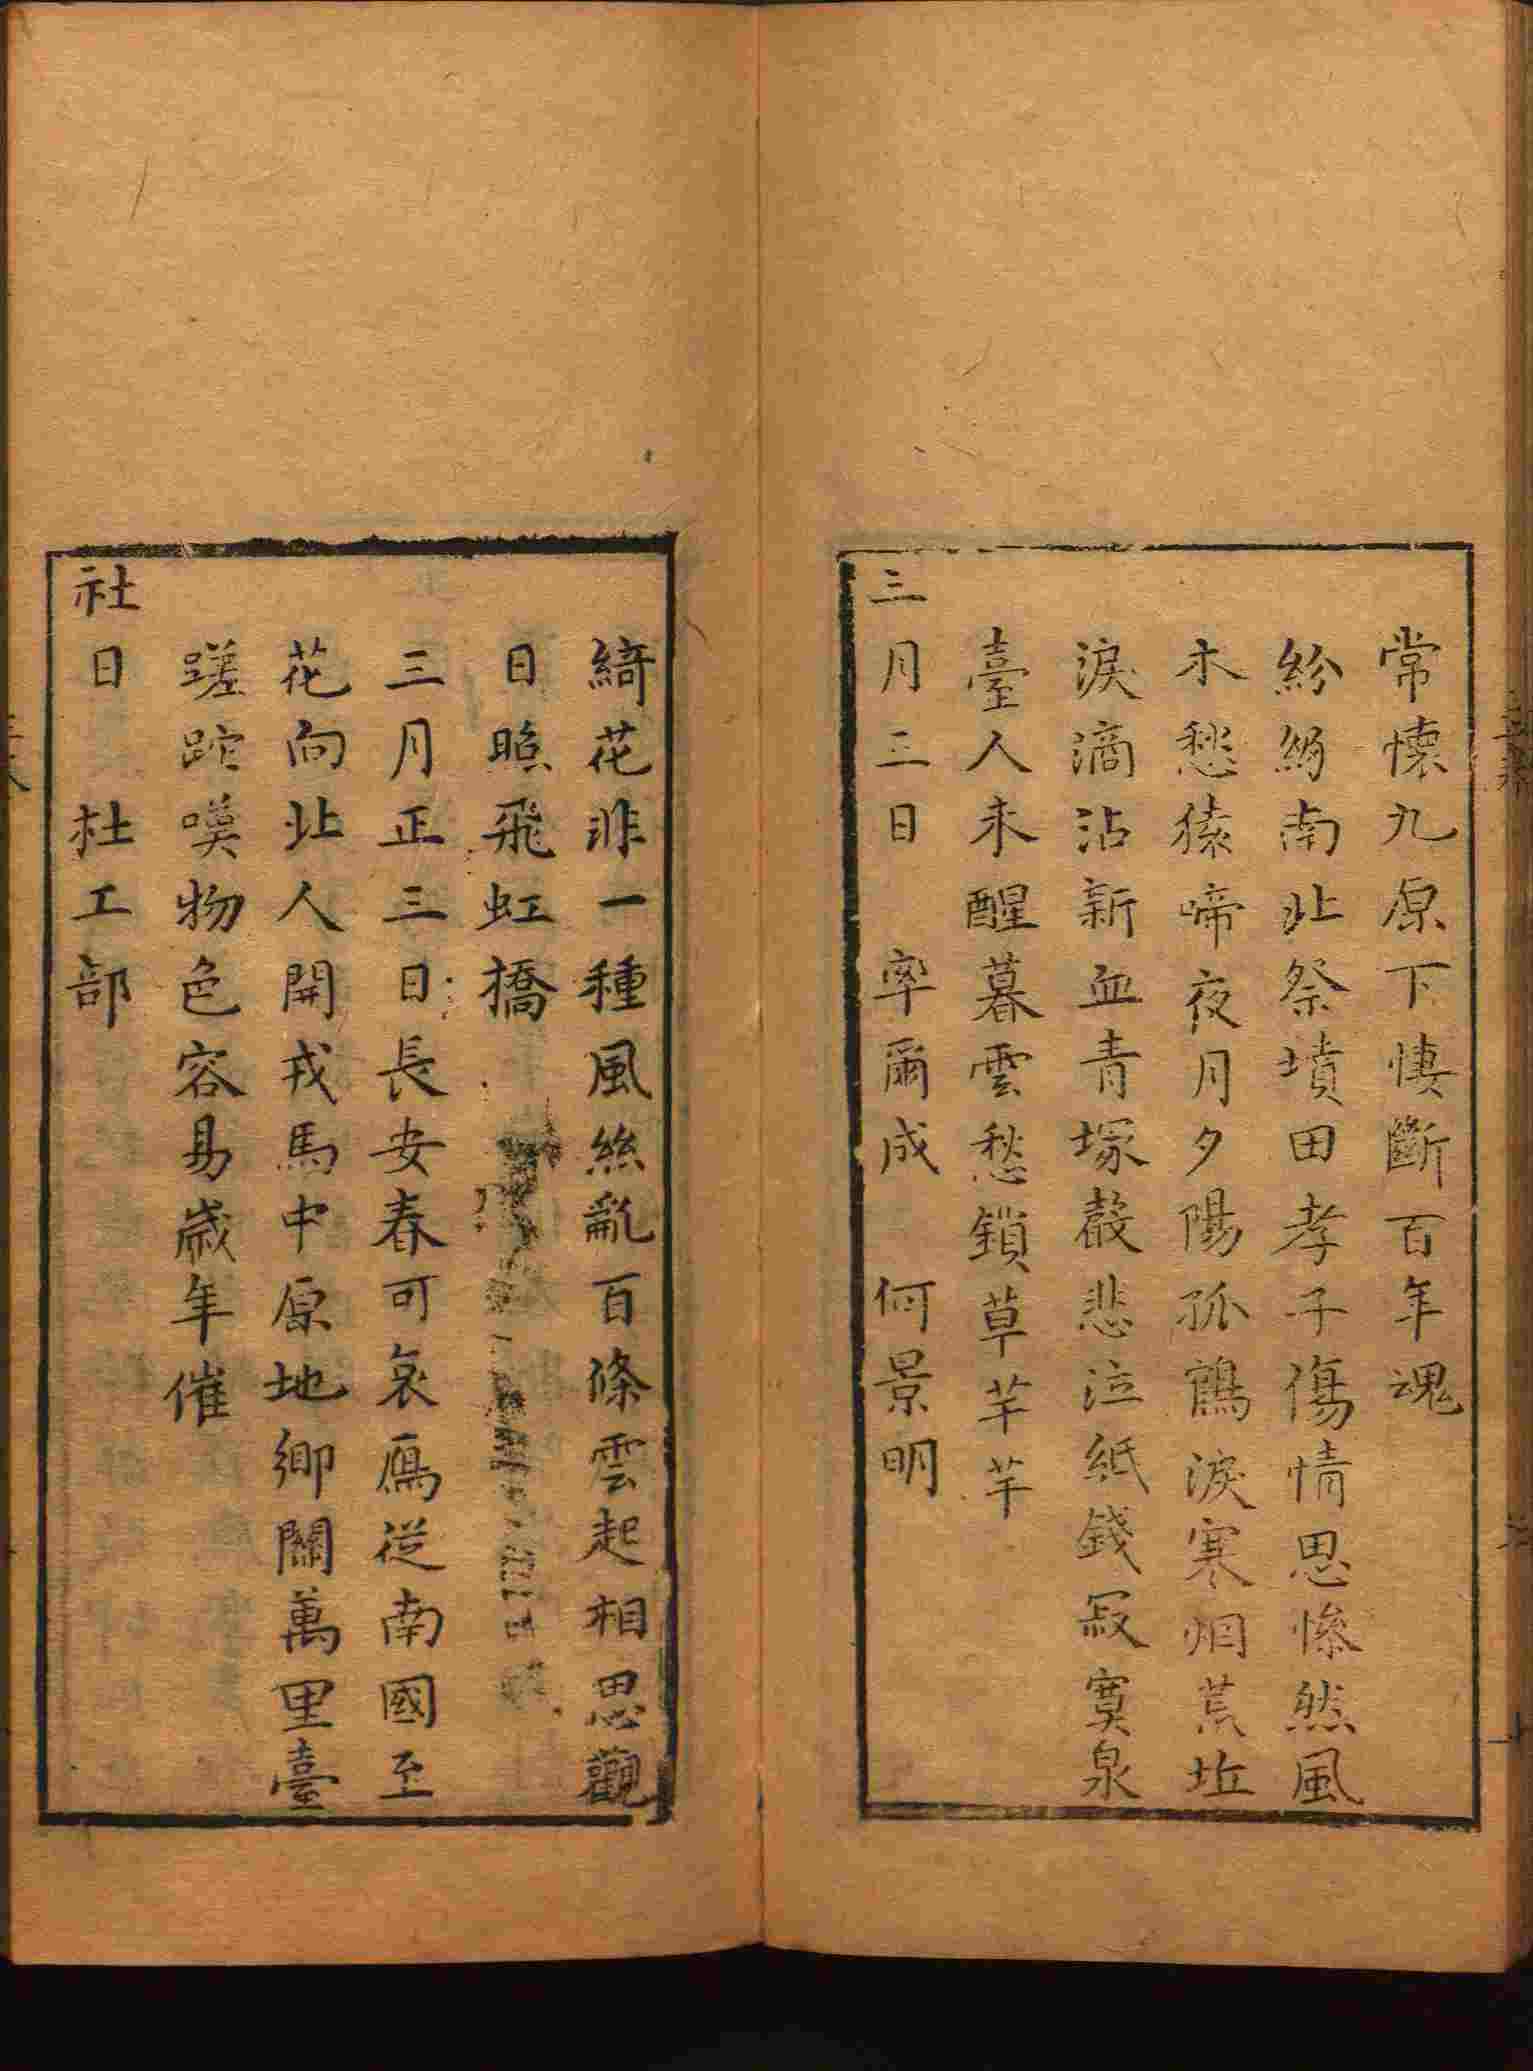 常懷九原下悽斷百年魂
紛紛南北祭墳田孝子傷情思慘然風
木愁猿啼夜月夕陽孤鶴淚寒烟荒坵
淚滴沾新血青塚聲悲泣紙錢寂寞泉
臺人未醒暮雲愁鎖草芊芊
三月三日 率爾成 何景明
綺花非一種風絲亂百條雲起相思觀
日照飛虹橋
三月正三日長安春可哀鴈從南國至
花向北人開戎馬中原地鄉關萬里臺
蹉跎嘆物色容易歲年催
社日 杜工部